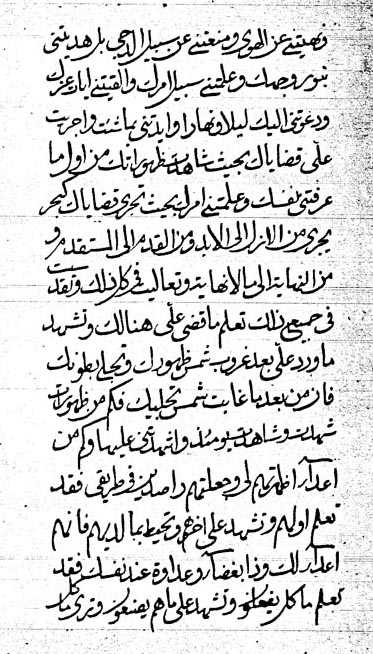 نهيتني عن الهوى ومنعتني عن سبيل الدجى بل هديتني
بنور وجهك وعلمتني سبيل امرك والقيتني ايات عزك
ودعوتني اليك ليلا ونهارا وايدتني بما شئت واجريت
علي قضاياك بحيث شاهدت ظهوراتك من اول ما
عرفتني نفسك وعلمتني امرك بحيث تجري قضاياك كبحر
يجري من الازل الى الابد ومن القدم الى
من النهاية الى ما لا نهاية وتعاليت في كل ذلك وتقدست
في جميع ذلك تعلم ما قضى علي هنالك وتشهد
ما ورد علي بعد غروب شمس ظهورك وتجلي بطونك
فان من بعد ما غابت شمس تجليك فكم من ظهورات
شهدت وشاهدت يومئذ واشهدتني عليها وكم من
اعداء اظهرتهم لي وجعلتهم راصدين في طريقي فقد
تعلم اولهم وتشهد على اخرهم وتحيط بما لديهم فانهم
اعداء لك وذا بغضاء وعداوة عند نفسك فقد
تعلم ما كل يفعلون وتشهد على ما هم يصنعون وترى ما كل